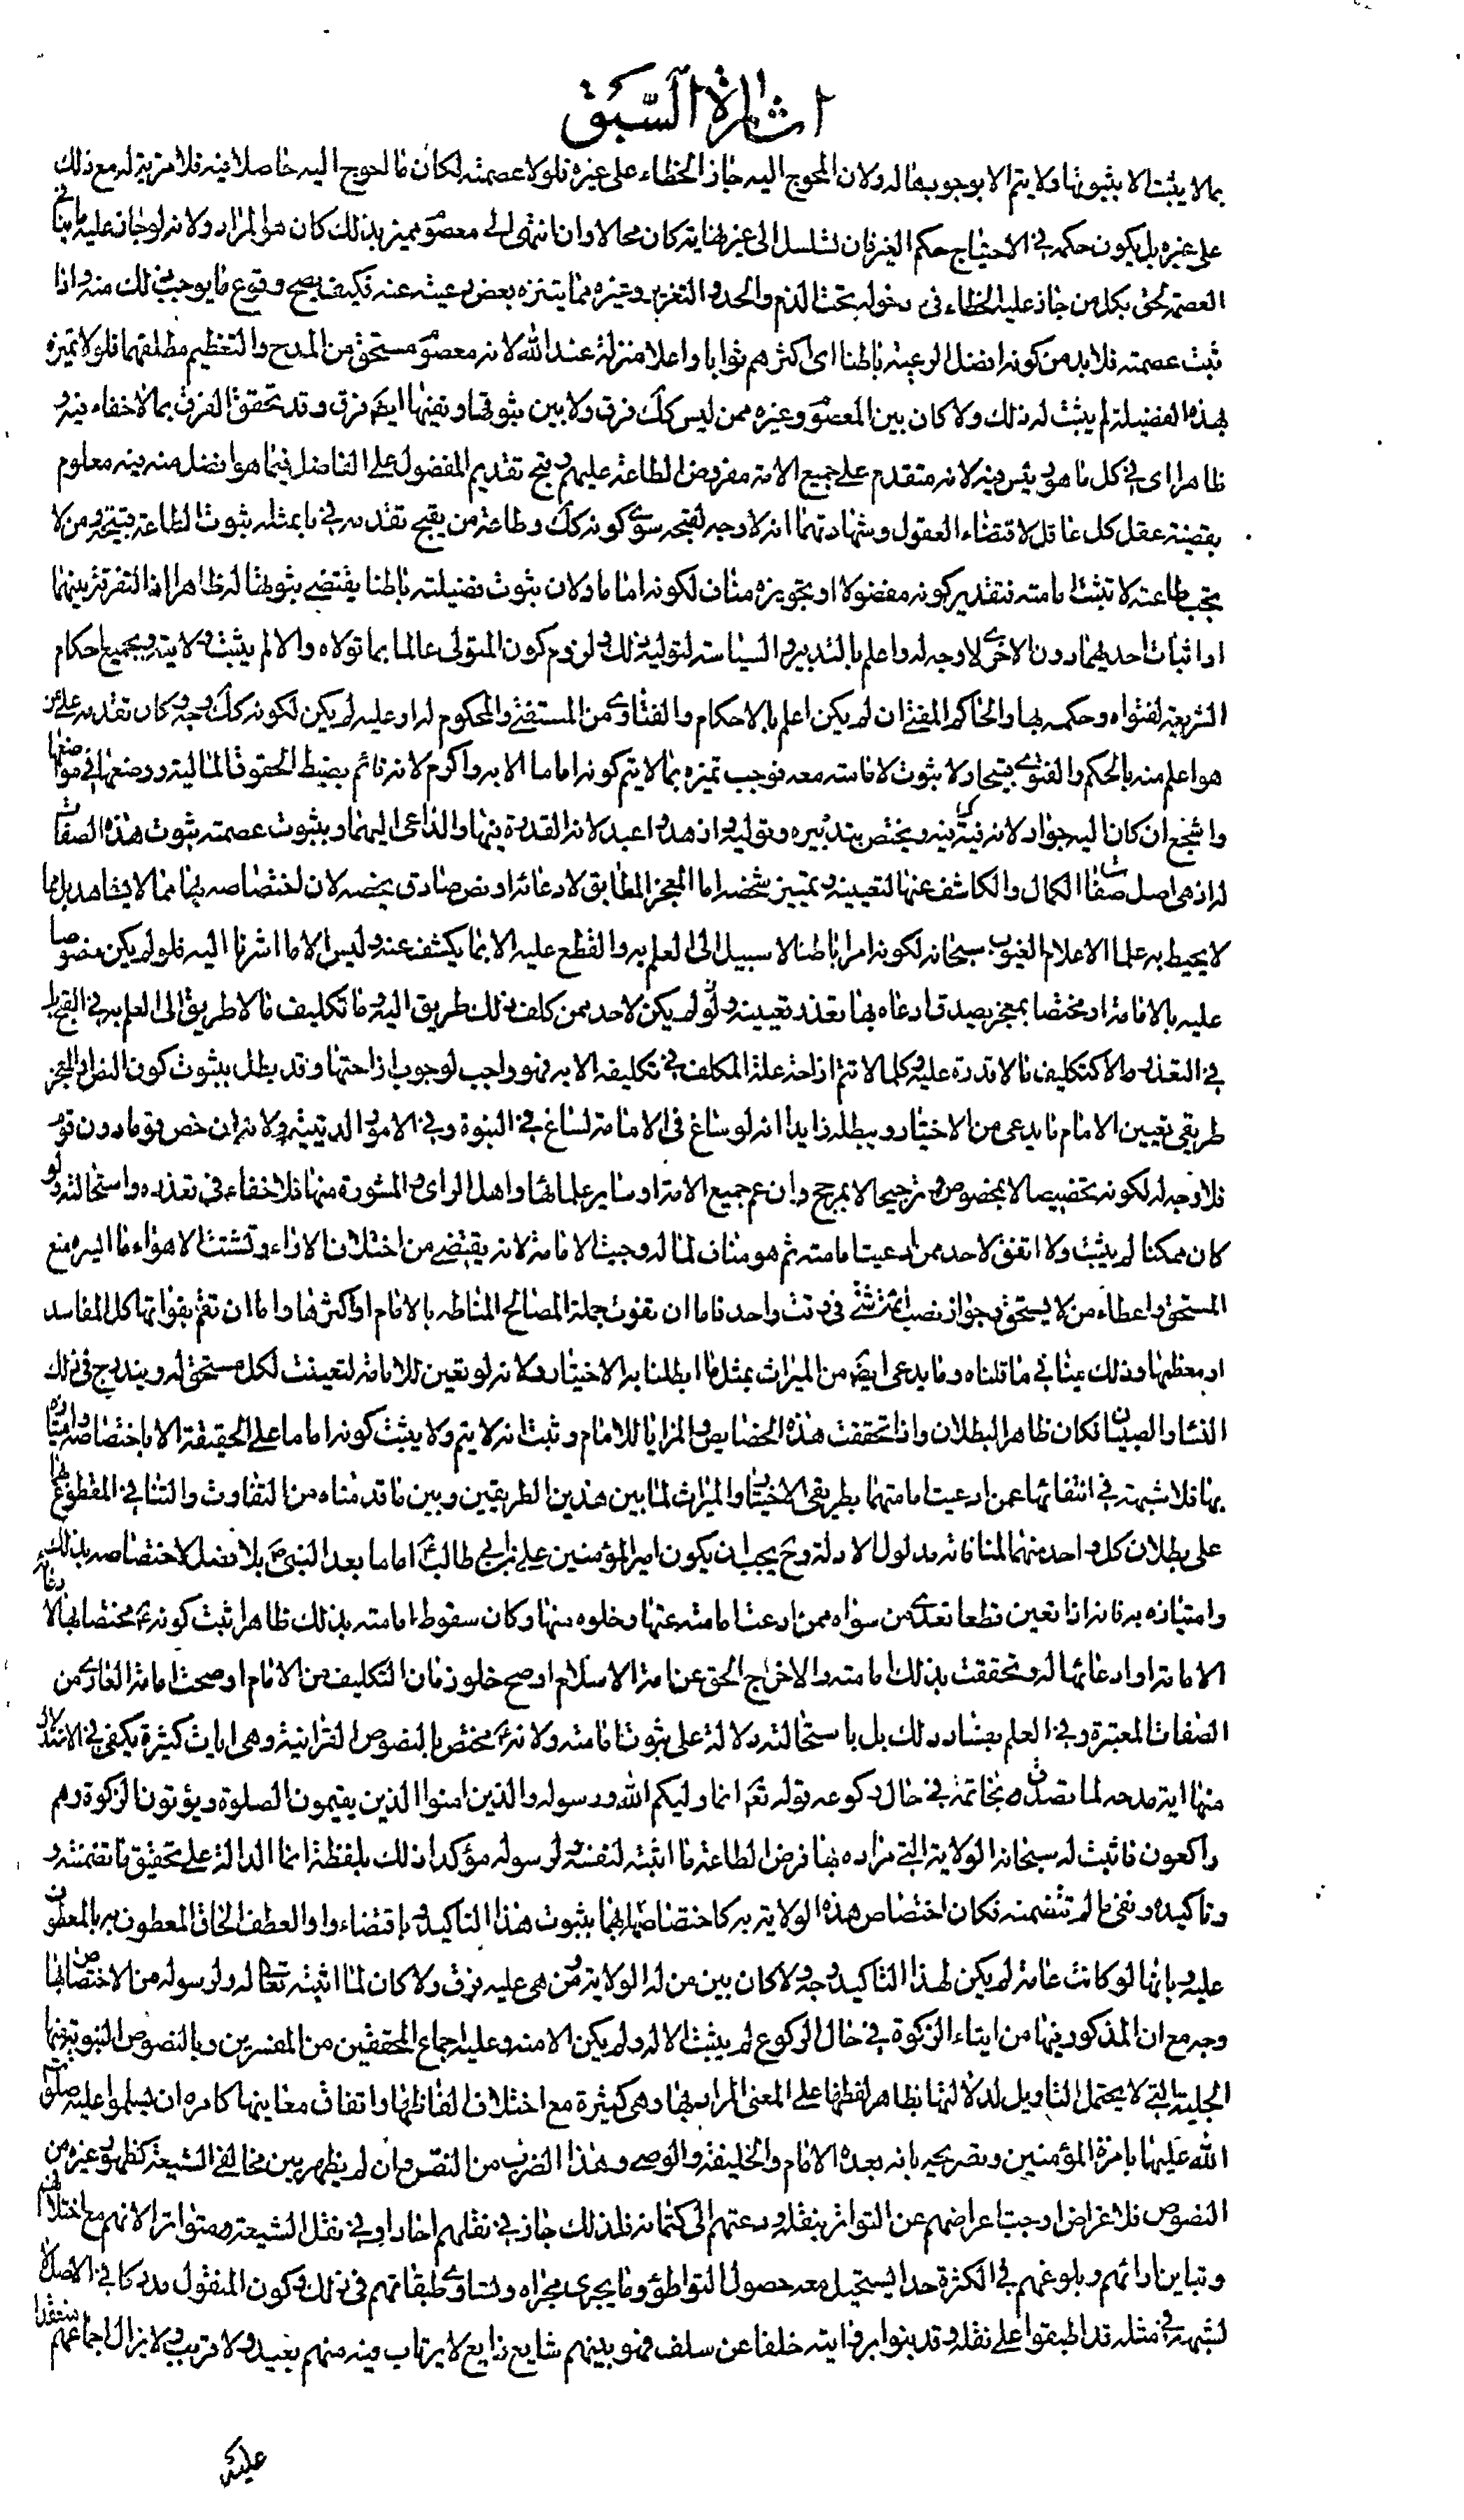 اشارة السبق
بما لا يثبت الا بثبوتها ولا يتم الا بوجوبها له ولان المحوج اليه جاز الخطاء على غيره فلولا عصمته لكان ما لحوج اليه حاصلا فيه فلا مزية له مع ذلك
على غيره بل يكون حكمه في الاحتياج حكم الغير فان تسلسل الى غير نهاية كان محالا وان انتهى الى معصوم مميز بذلك كان هو المراد ولانه لو جاز عليه ما ينافي
العصمة لحق بكل من جاز عليه الخطاء في دخوله تحت الذم والحد والتعزير وغيره مما يتنزه بعض رعيته عنه فكيف يصح وقوع ما يوجب ذلك منه واذا
ثبت عصمته فلا بد من كونه افضل الرعية باطنا اى اكثرهم ثوابا واعلا منزلة عند الله لانه معصوم مستحق من المدح والتعظيم مطلقهما فلولا تميزه
بهذه الفضيلة لم يثبت له ذلك ولا كان بين المعصوم وغيره ممن ليس كك فرق ولا بين ثبوتها ونفيها ايضا فرق وقد تحقق الفرق بما لا خفاء فيه و
ظاهرا اى في كل ما هو رئيس فيه لانه متقدم على جميع الامة مفروض الطاعة عليهم وقبح تقديم المفضول على الفاضل فيما هو افضل منه فيه معلوم
بقضية عقل كل عاقل لاقتضاء العقول وشهادتهما انه لا وجه لقبحه سوى كونه كك وطاعة من يقبح تقديمه في ما بمثله ثبوت الطاعة قبيحة ومن لا
يجب طاعته لا تثبت امامته فتقدير كونه مفضولا او تجويزه مناف لكونه اماما ولان ثبوت فضيلته باطنا يقتضى بثوتها له ظاهرا اذ التفرقة بينهما
او اثبات احديهما دون الاخرى لا وجه له واعلم بالتدبير والسياسة لتوليه ذلك ولزوم كون المتولى عالما بما تولاه والا لم يثبت ولايته وبجميع احكام
الشريعة لفتواه وحكمه بها والحاكم المفتى ان لم يكن اعلم بالاحكام والفتاوى من المستفتى والمحكوم له او عليه لم يكن لكونه كك وجه وكان تقديمه على من
هو اعلم منه بالحكم والفتوى قبيحا ولا ثبوت لاقامته معه فوجب تميزه بما لا يتم كونه اماما الا به واكرم لانه قائم بضبط الحقوق المالية ووضعها في مواضعها
واشجع ان كان اليه جهاد لانه فئة فيه ويختص بتدبيره وتوليه وازهد واعبد لانه القدوة فيهما والداعى اليهما وبثبوت عصمته ثبوت هذه الصفات
له اذ هى اصل صفات الكمال والكاشف عنها لتعيينه وتمييز شخصه اما المعجز المطابق لادعائه او نص صادق يخصه لان اختصاصه بها مما لا يشاهد بل مما
لا يحيط به علما الا علام الغيوب سبحانه لكونه امرا باطنا لا سبيل الى العلم به والقطع عليه الا بما يكشف عنه وليس الا ما اشرنا اليه فلو لم يكن منصوصا
عليه بالامامة او مختصا بمعجز يصدق ادعاه بها تعذر تعيينه ولو لم يكن لاحد ممن كلف ذلك طريق اليه وما تكليف ما لا طريق الى العلم به في القبح بل
في التعذر الا كتكليف ما لا قدرة عليه وكلما لا تتم ازاحة علة المكلف في تكليفه الا به فهو واجب لوجوب ازاحتها وقد بطل بثبوت كون النص او المعجز
طريقى تعيين الامام ما يدعى من الاختيار ويبطله زايدا انه لو ساغ في الامامة لساغ في النبوة وفي الامور الدينية ولانه ان خص قوما دون قوم
فلا وجه له لكونه تخصيصا لا بمخصوص وترجيحا لا بمرجح وان عم جميع الامة او ساير علمائها واهل الراى والمشورة منها فلا خفاء في تعذره واستحالته ولو
كان ممكنا لم يثبت ولا اتفق لاحد ممن ادعيت امامته ثم هو مناف لما له وجبت الامامة لانه يقتضى من اختلاف الاراء وتشتت الاهواء ما اليسره منع
المستحق واعطاء من لا يستحق وجواز نصب ائمة شتى في وقت واحد فاما ان تفوت جملة المصالح المناطه بالامام او اكثرها واما ان تقم بفواتها كل المفاسد
او معظمها وذلك مناف في ما قلناه وما يدعى ايضا من الميراث بمثل ما ابطلنا به الاختيار ولانه لو تعين للامامة لتعينت لكل مستحق له ويندرج في ذلك
النساء والصبيان فكان ظاهر البطلان واذا تحققت هذه الخصايص والمزايا للامام وثبت انه لا يتم ولا يثبت كونه اماما على الحقيقة الا باختصاصه وامتيازه
بها فلا شبهة في انتفائها عمن ادعيت امامتهما بطريقى الاختيار والميراث لما بين هذين الطريقين وبين ما قدمناه من التفاوت والتنافي المقطوع بهما
على بطلان كل واحد منهما لمنافاته مدلول الادلة وح يجب ان يكون امير المؤمنين على بن ابي طالب ع اماما بعد النبى ص بلا فصل لاختصاصه بذلك
وامتيازه به فانه اذا تعين قطعا تعدى من سواه ممن ادعت امامته عنها وخلوه منها وكان سقوط امامته بذلك ظاهرا ثبت كونه ع مختصا بها لادعائه
الامامة او ادعائها له وتحققت بذلك امامته والاخراج الحق عن امة الاسلام او صح خلو زمان التكليف من الامام او صحت امامة العارى من
الصفات المعتبرة وفي العلم بفساد ذلك بل باستحالته دلالة على ثبوت امامته ولانه ع مختص بالنصوص القرانية وهى ايات كثيرة يكفى في الاستدلال
منها اية مدحه لما تصدق بخاتمه في حال ركوعه قوله تع انما وليكم الله ورسوله والذين امنوا الذين يقيمون الصلوة ويؤتون الزكوة وهم
راكعون فاثبت له سبحانه الولاية التى مراده بها فرض الطاعة ما اثبته لنفسه ولرسوله مؤكدا ذلك بلفظة انما الدالة على تحقيق ما تضمنته و
وتاكيده ونفى ما لم تتضمنه فكان اختصاص هذه الولاية به كاختصاصها بهما بثبوت هذا التاكيد وباقتضاء واو العطف الحاق المعطوف به بالمعطوف
عليه وبانها لو كانت عامة لم يكن لهذا التاكيد وجه ولا كان بين من له الولاية ومن هى عليه فرق ولا كان لما اثبته تعالى له ولرسوله من الاختصاص بها
وجه مع ان المذكور فيها من ايتاء الزكوة في حال الركوع لم يثبت الا له ولم يكن الا منه وعليه اجماع المحققين من المفسرين وبالنصوص النبوية فمنها
الجلية التى لا يحتمل التاويل لدلالتها بظاهر لفظها على المعنى المراد بها وهى كثيرة مع اختلاف الفاظها واتفاق معانيها كامره ان يسلموا عليه صلوات
الله عليهما بامرة المؤمنين وتصريحه بانه بعده الامام والخليفة والوصى وهذا الضرب من النص وان لم يظهر بين مخالفى الشيعة كظهور غيره من
النصوص فلاغراض اوجبت اعراضهم عن التواتر بنقله ودعتهم الى كتمانه فلذلك جاز في نقلهم احادا وفي نقل الشيعة متواترا لانهم مع اختلافهم
وتباين ارائهم وبلوغهم في الكثرة حدا يستحيل معه حصول التواطؤ وما يجرى مجراه وتساوى طبقاتهم في ذلك وكون المنقول مدركا في الاصل لا
لشبهة في مثله قد اطبقوا على نقله وقد دينوا بروايته خلفا عن سلف فهو بينهم شايع ذايع لا يرتاب فيه منهم بعيد ولا قريب ولا يزال اجماعهم منعقدا
عليه